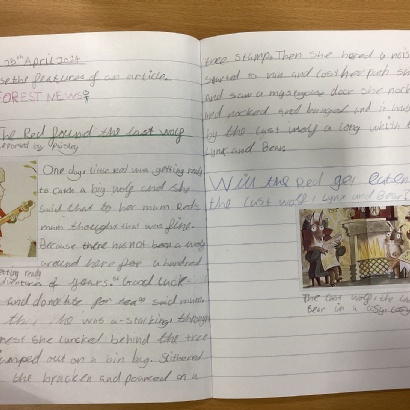 25th April 2024
se the features of an article.
FOREST NEWS
The Red found the last wolf
reported by
One day little red was getting ready
to catch a big wolf and she
said that to her mum Red's
mum thought that was fine.
Because there has not been a wolf
around here for a hundred
of years." Good luck
and don't be for tea" said mum
the, he was a-starking through
she lurcked behind the tree
umped out on a bin bag. Slithered
the bracken and pounced on a
getting ready
adventure
tree stump. Then she heard a nois
started to run and lost her
and saw a mysteryous door she noc
and nocked and banged and it
by the last wolf a long with t
Lynx and Bear.
Will the Red get eaten
the last wolf, Lynx and Bear
The last wolf, the
Bear in a cosy